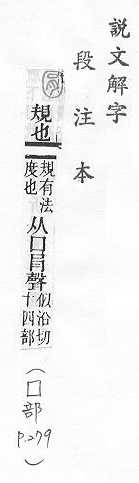 說文解字
段注本
規也規有法度也从囗肙聲似沿切十四部(囗部P.279)